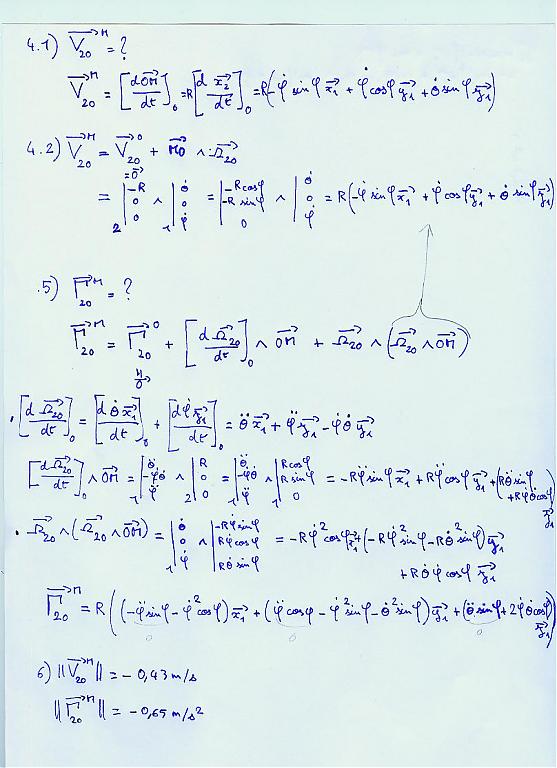 4.1) V⃗₂₀ᴹ = ?
V⃗₂₀ᴹ = [dOM⃗/dt]₀ = R[d x⃗₂/dt]₀ = R(-φ̇ sinφ x⃗₁ + φ̇ cosφ y⃗₁ + θ̇ sinφ z⃗₁)
4.2) V⃗₂₀ᴹ = V⃗₂₀ᴼ + MO⃗ ∧ Ω⃗₂₀
= 0⃗
= ₂|-R 0 0 ∧ ₁|θ̇ 0 φ̇ = |-R cosφ -R sinφ 0 ∧ |θ̇ 0 φ̇ = R(-φ̇ sinφ x⃗₁ + φ̇ cosφ y⃗₁ + θ̇ sinφ z⃗₁)
.5) Γ⃗₂₀ᴹ = ?
Γ⃗₂₀ᴹ = Γ⃗₂₀ᴼ + [dΩ⃗₂₀/dt]₀ ∧ OM⃗ + Ω⃗₂₀ ∧ (Ω⃗₂₀ ∧ OM⃗)
= 0⃗
• [dΩ⃗₂₀/dt]₀ = [dθ̇ x⃗₁/dt]₀ + [dφ̇ z⃗₁/dt]₀ = θ̈ x⃗₁ + φ̈ z⃗₁ - φ̇θ̇ y⃗₁
[dΩ⃗₂₀/dt]₀ ∧ OM⃗ = ₁|θ̈ -φ̇θ̇ φ̈ ∧ ₂|R 0 0 = ₁|θ̈ -φ̇θ̇ φ̈ ∧ ₁|R cosφ R sinφ 0 = -Rφ̈ sinφ x⃗₁ + Rφ̈ cosφ y⃗₁ + (Rθ̈ sinφ + Rφ̇θ̇ cosφ) z⃗₁
• Ω⃗₂₀ ∧ (Ω⃗₂₀ ∧ OM⃗) = ₁|θ̇ 0 φ̇ ∧ |-Rφ̇ sinφ Rφ̇ cosφ Rθ̇ sinφ = -Rφ̇² cosφ x⃗₁ + (-Rφ̇² sinφ - Rθ̇² sinφ) y⃗₁
+ Rθ̇φ̇ cosφ z⃗₁
Γ⃗₂₀ᴹ = R((-φ̈ sinφ - φ̇² cosφ) x⃗₁ + (φ̈ cosφ - φ̇² sinφ - θ̇² sinφ) y⃗₁ + (θ̈ sinφ + 2φ̇θ̇ cosφ) z⃗₁)
0 0 0
6) ||V⃗₂₀ᴹ|| = - 0,43 m/s
||Γ⃗₂₀ᴹ|| = - 0,65 m/s²